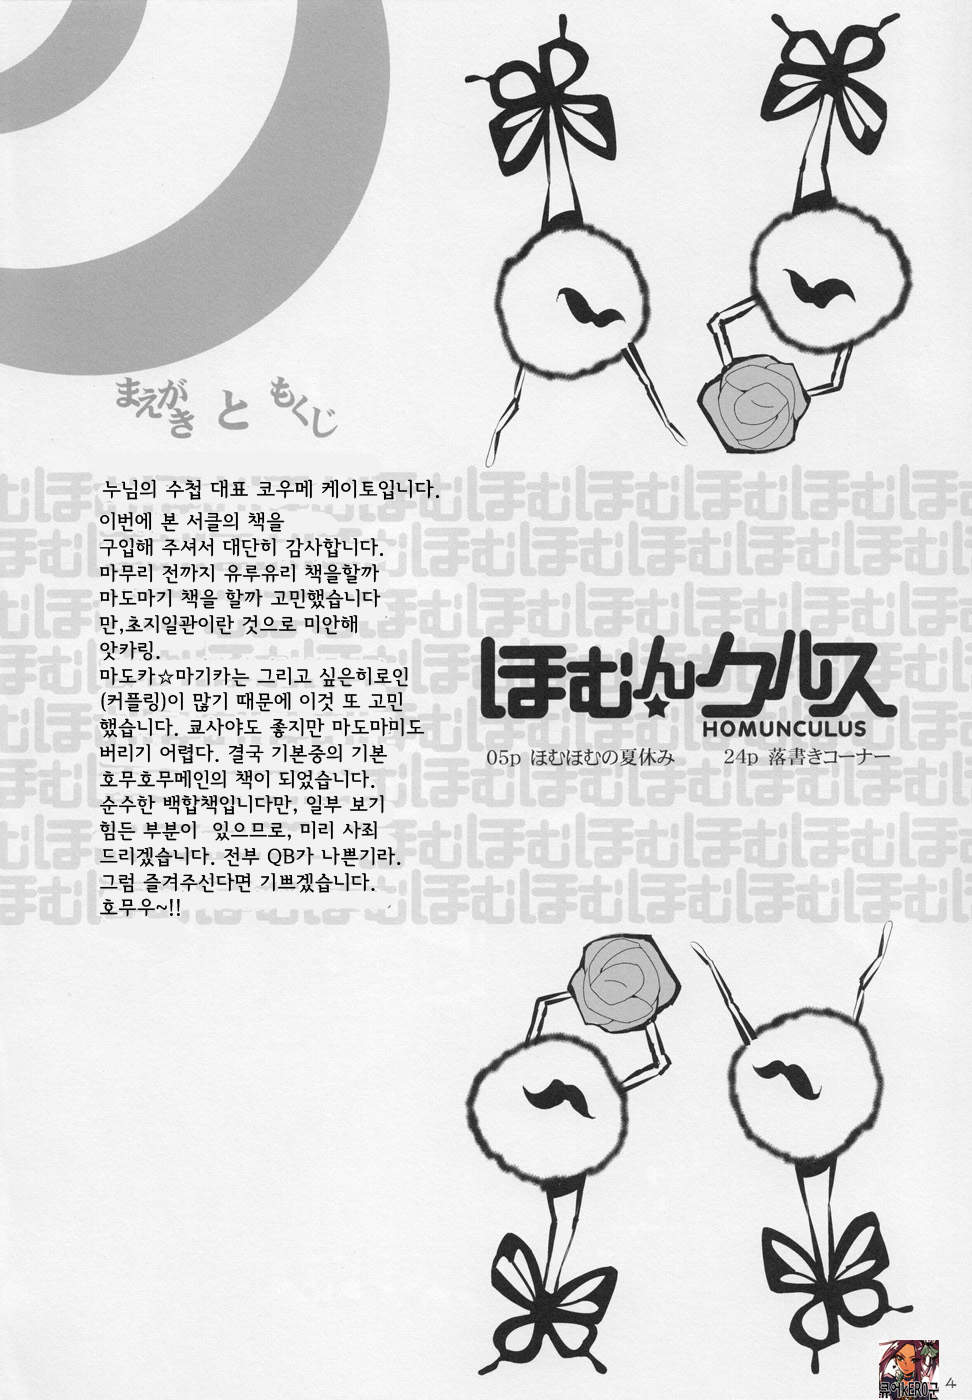 まえがき と もくじ
누님의 수첩 대표 코우메 케이토입니다.
이번에 본 서클의 책을
구입해 주셔서 대단히 감사합니다.
마무리 전까지 유루유리 책을할까
마도마기 책을 할까 고민했습니다
만,초지일관이란 것으로 미안해
앗카링.
마도카☆마기카는 그리고 싶은히로인
(커플링)이 많기 때문에 이것 또 고민
했습니다. 쿄사야도 좋지만 마도마미도
버리기 어렵다. 결국 기본중의 기본
호무호무메인의 책이 되었습니다.
순수한 백합책입니다만, 일부 보기
힘든 부분이 있으므로, 미리 사죄
드리겠습니다. 전부 QB가 나쁜기라.
그럼 즐겨주신다면 기쁘겠습니다.
호무우~!!
ほむんクルス
HOMUNCULUS
05p ほむほむの夏休み 24p 落書きコーナー
4